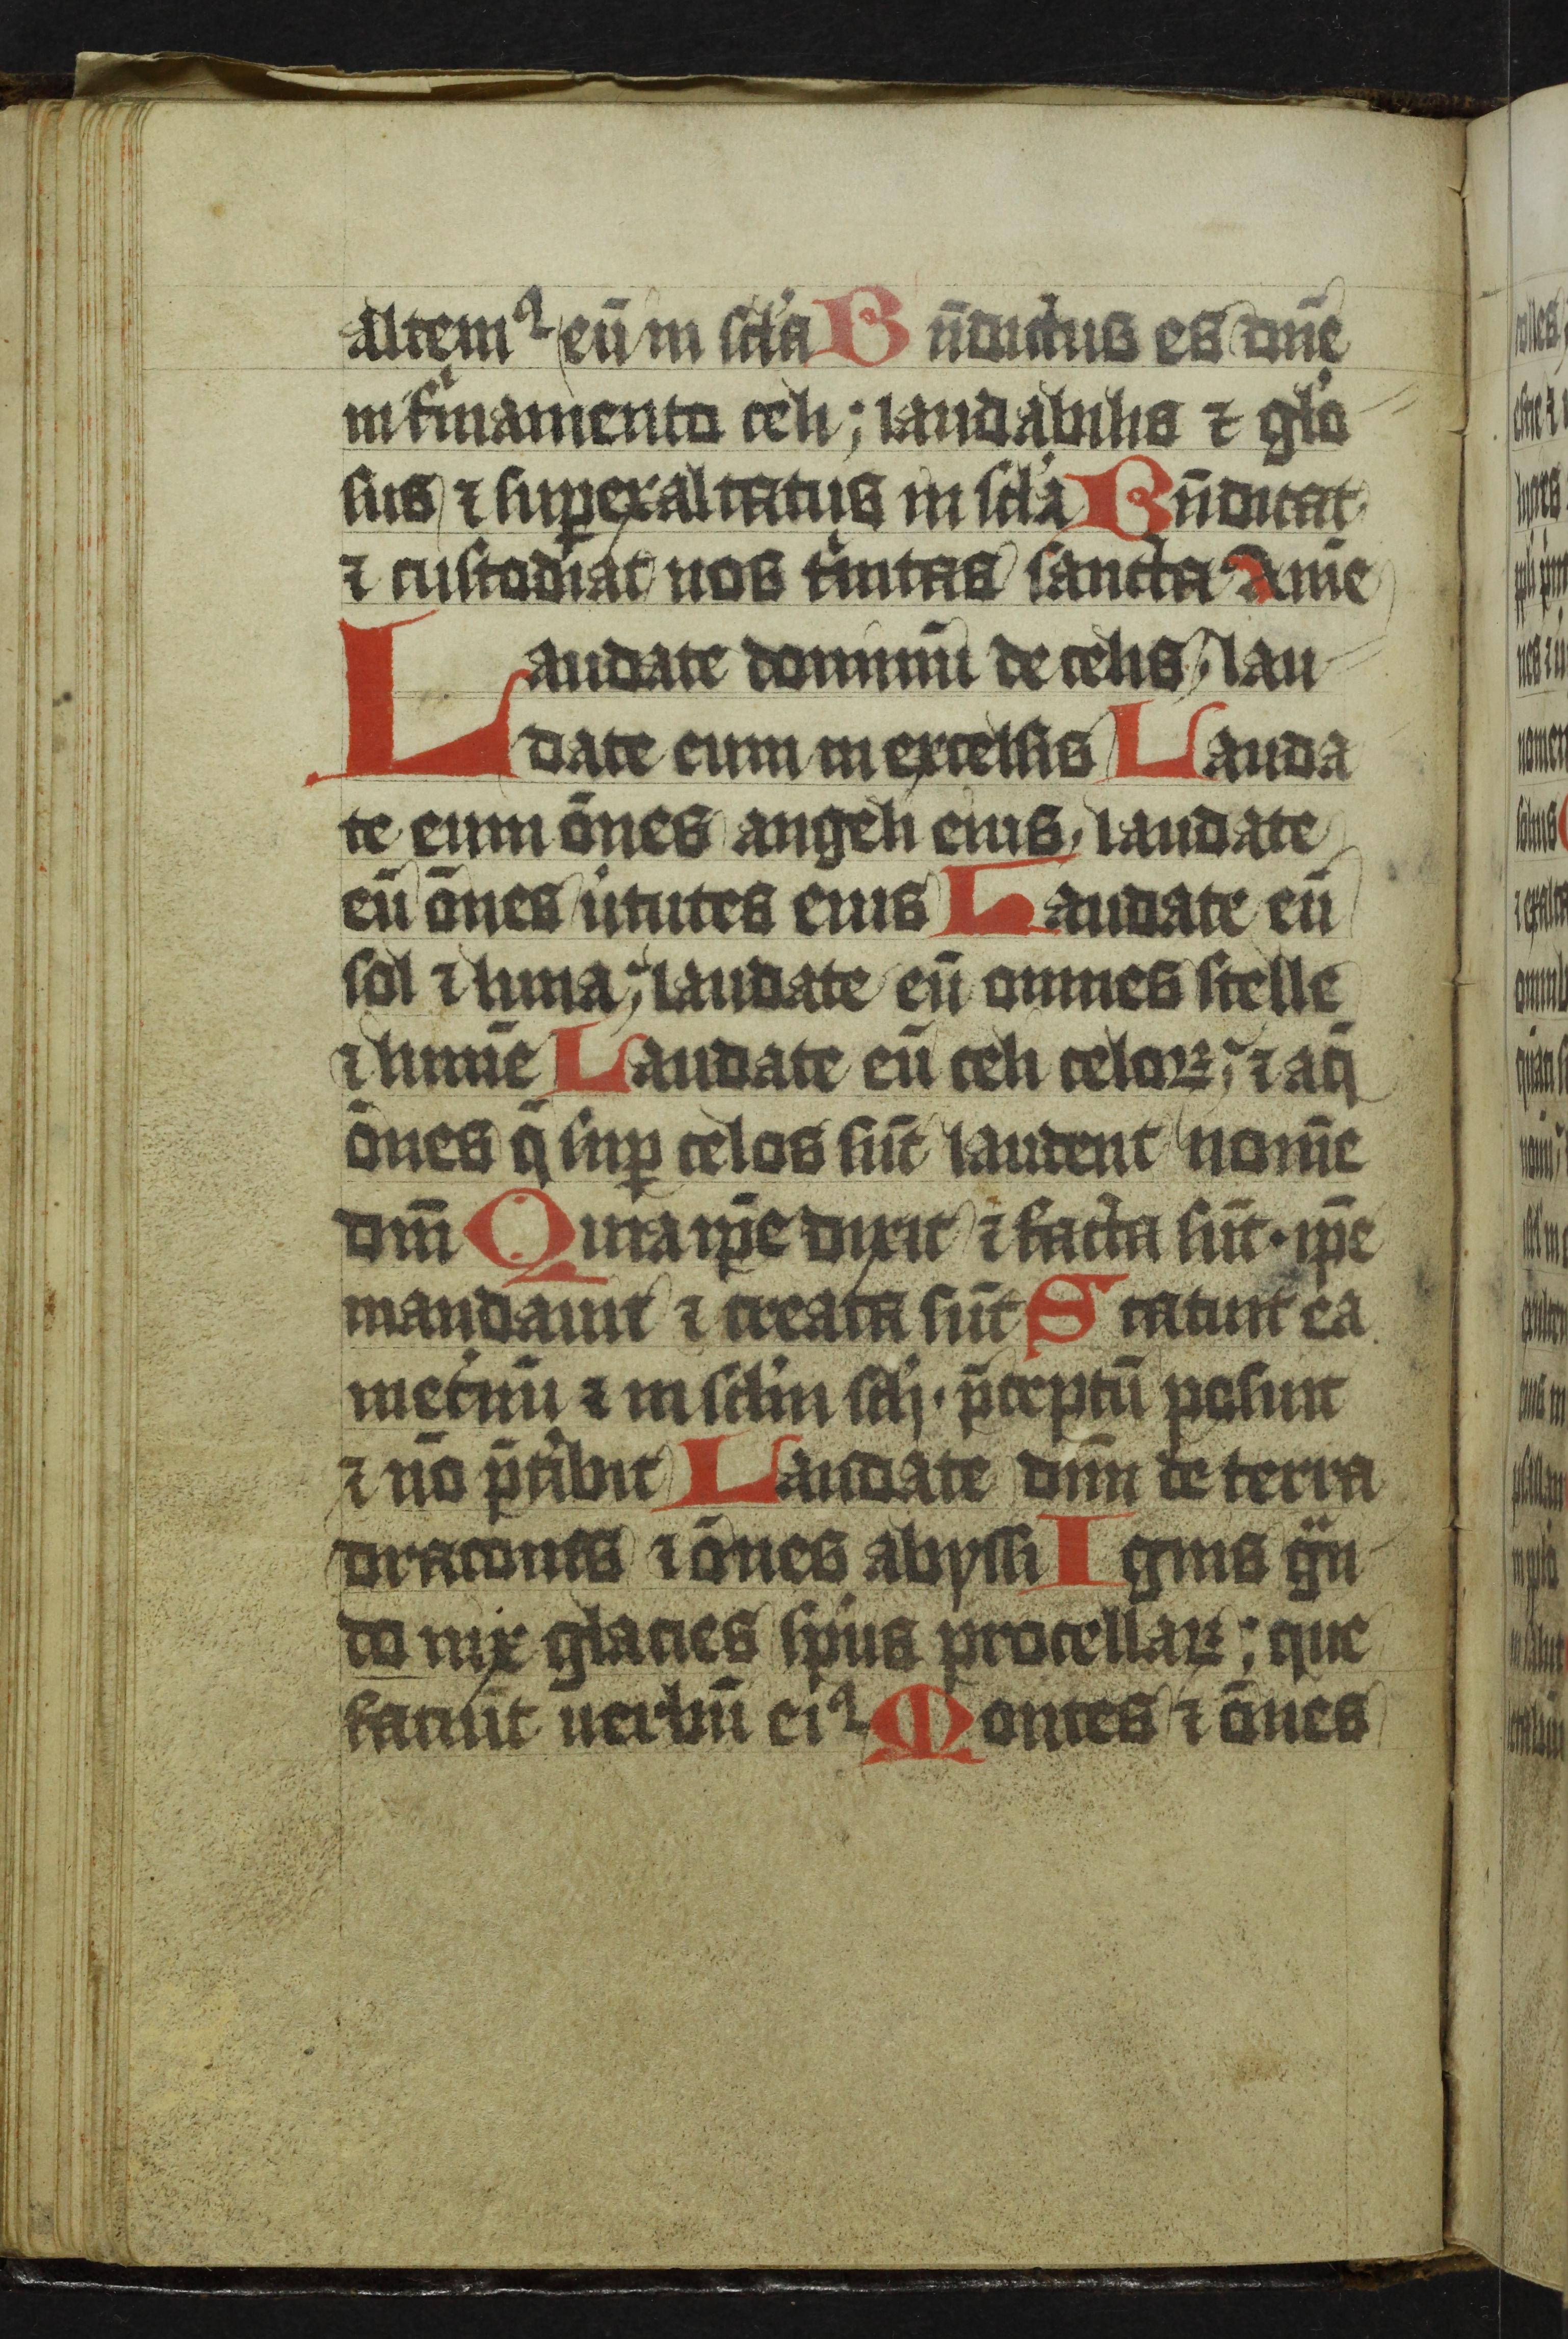 altemꝰ eū in scl̓a Bn̄dictus es dn̄e
in firmamento celi; laudabilis ⁊ gl̓o
sus ⁊ suꝑexaltatus in scl̓a Bn̄dicat
⁊ custodiat nos tͥnitas sancta Amē
Laudate dominū de celis, lau
date eum in excelsis Lauda
te eum om̄es angeli eius, laudate
eū om̄es ũtutes eius Laudate eū
sol ⁊ luna; laudate eū omnes stelle
⁊ lumē Laudate eū celi celoꝝ; ⁊ aq̄
om̄es q̄ suꝑ celos sūt laudent nomē
dn̄i Quia ip̄e dixit ⁊ facta sūt · ip̄e
mandauit ⁊ creata sūt Statuit ea
inet̓nū ⁊ in scl̓m scl̓i · p̄ceptū posuit
⁊ nō p̄t̓ibit Laudate dn̄m de terra
dracones ⁊ om̄es abyssi Ignis gͣn
do nix glacies sp̄us procellaꝝ; que
faciūt uerbū eiꝰ Montes ⁊ om̄es